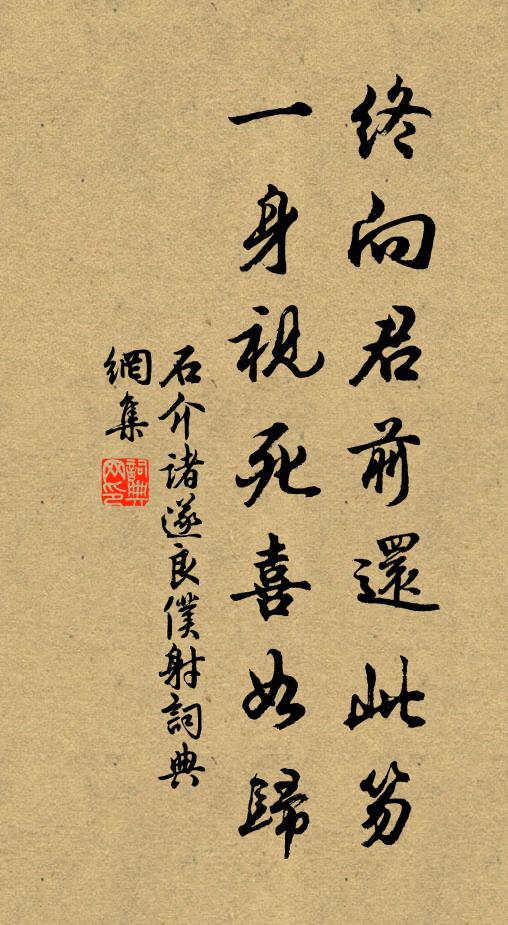 終向君前還此笏
一身視死喜如歸
石介諸遂良僕射詞典
網集
詞典
网印